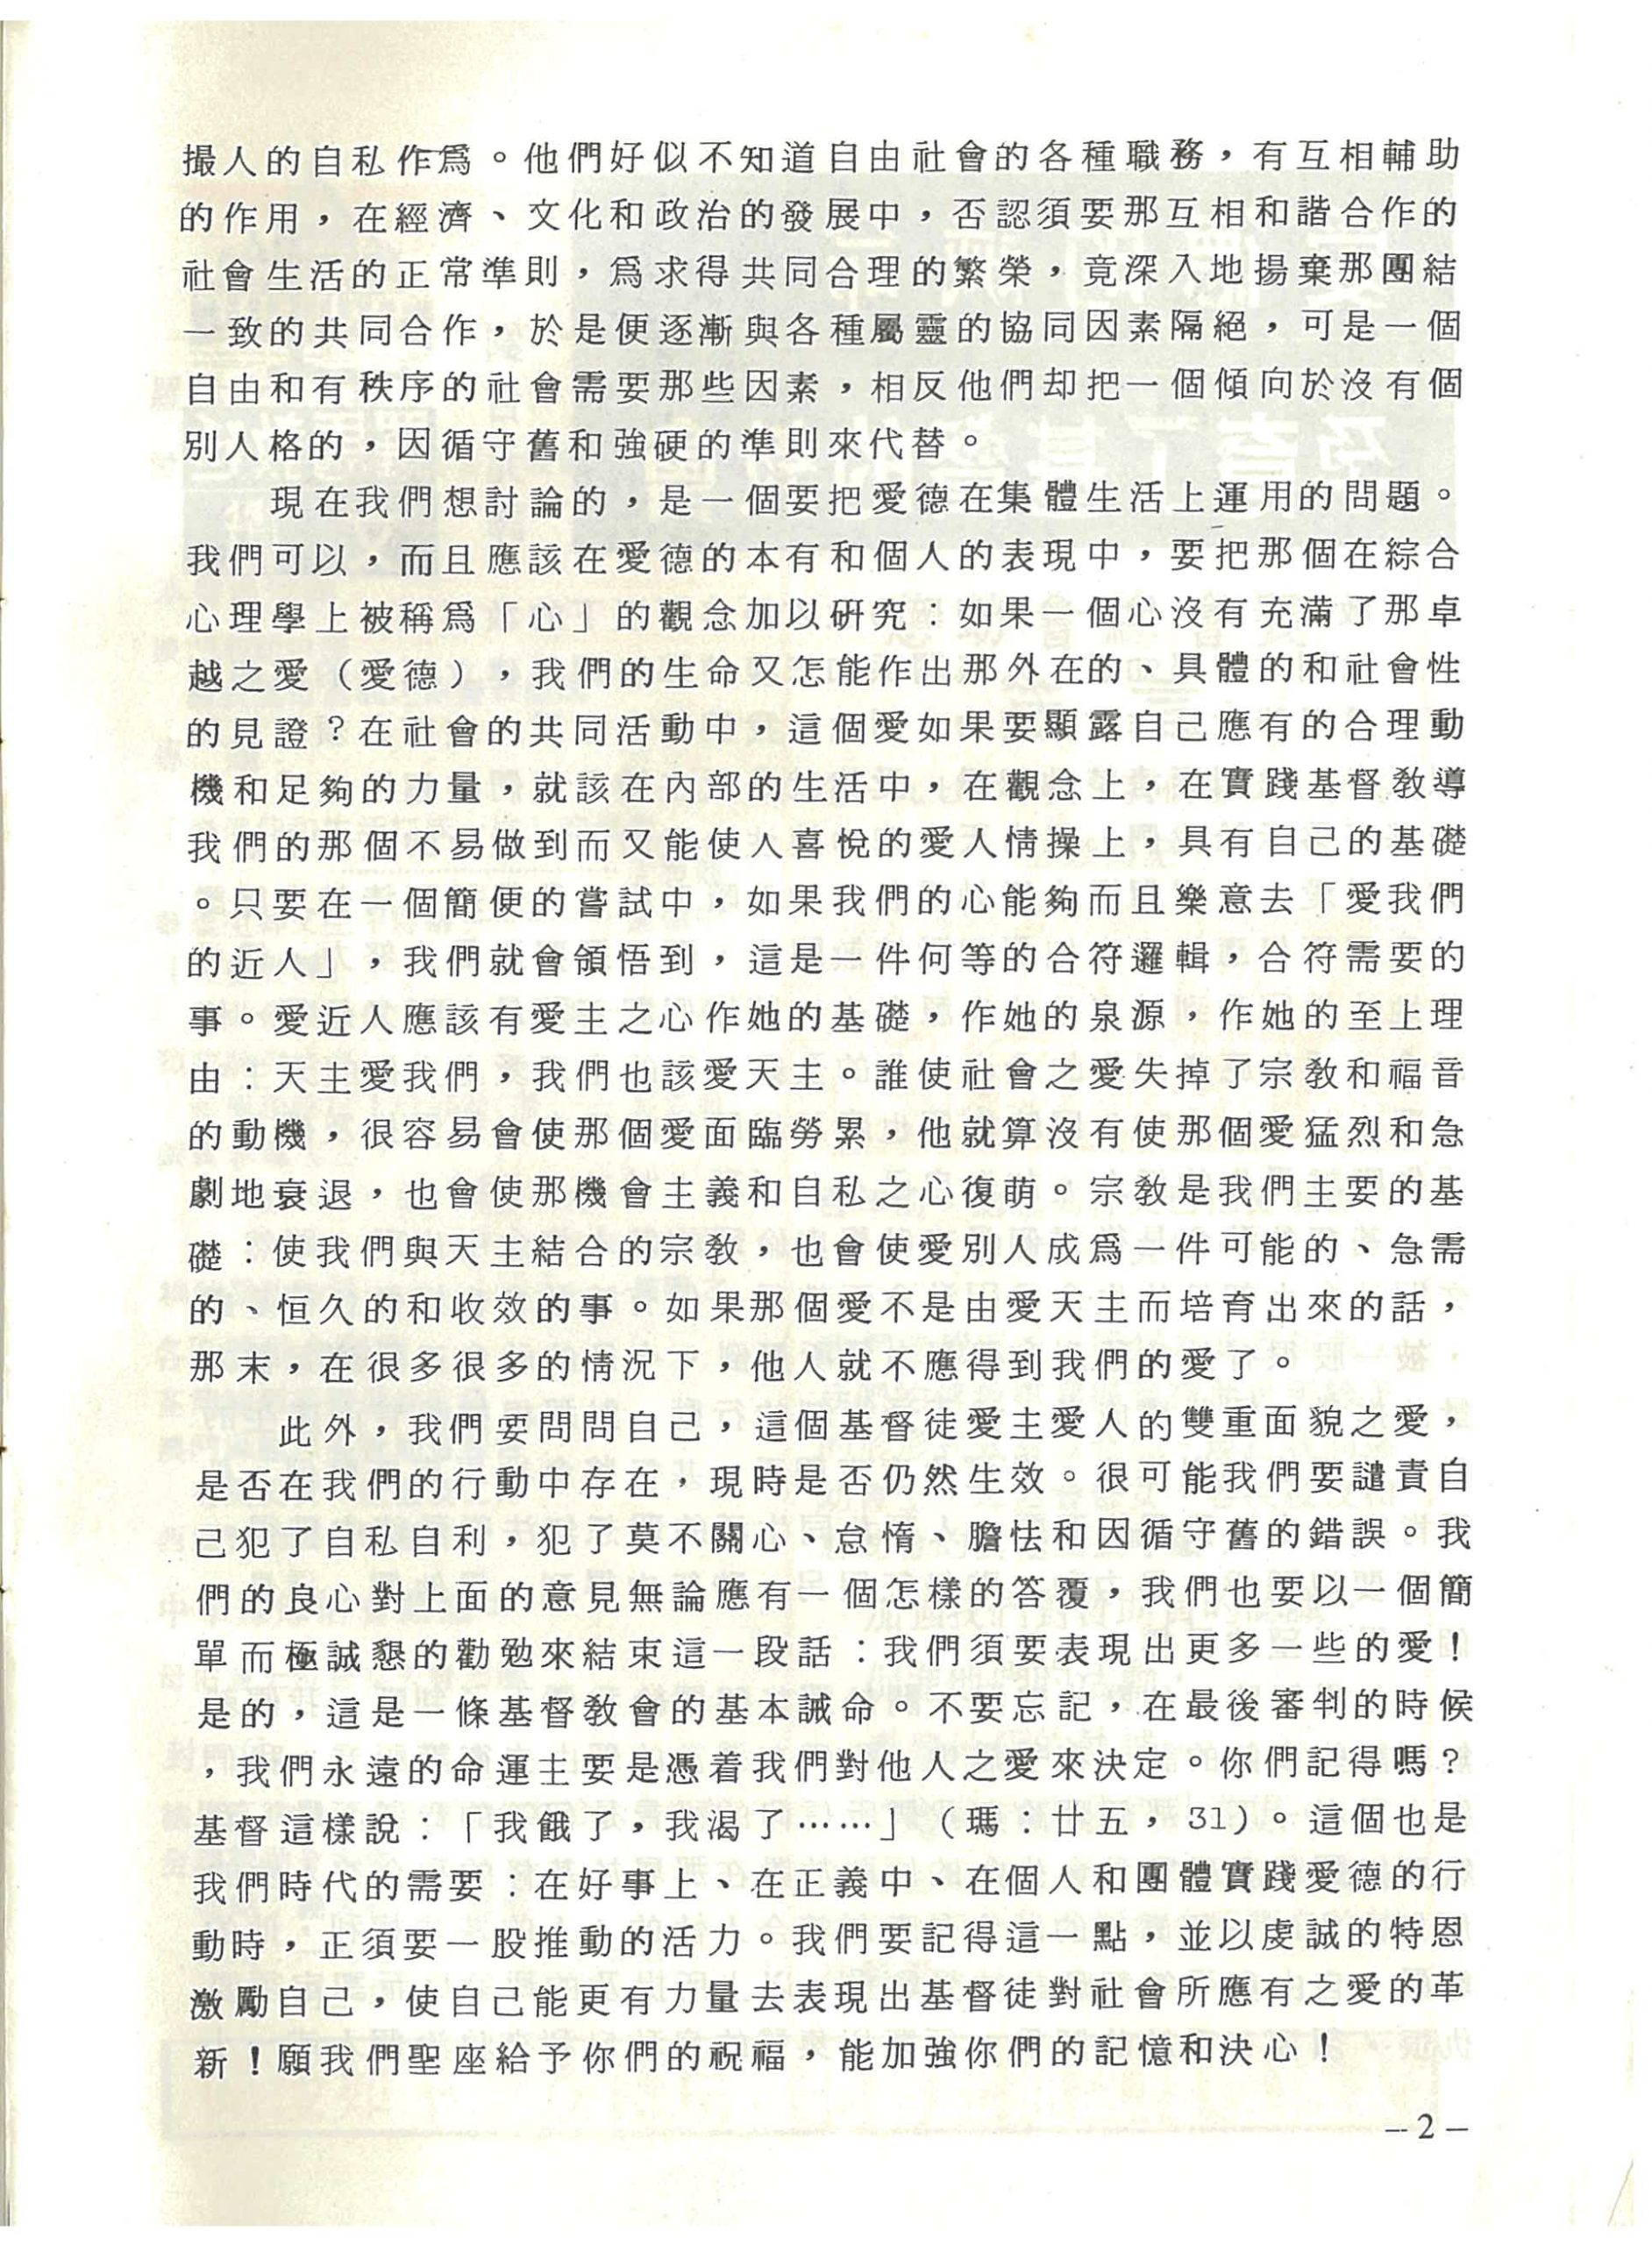 撮人的自私作爲。他們好似不知道自由社會的各種職務，有互相輔助
的作用，在經濟、文化和政治的發展中，否認須要那互相和諧合作的
社會生活的正常準則，爲求得共同合理的繁榮，竟深入地揚棄那團結
一致的共同合作，於是便逐漸與各種屬靈的協同因素隔絕，可是一個
自由和有秩序的社會需要那些因素，相反他們却把一個傾向於沒有個
別人格的，因循守舊和強硬的準則來代替。
現在我們想討論的，是一個要把愛德在集體生活上運用的問題。
我們可以，而且應該在愛德的本有和個人的表現中，要把那個在綜合
心理學上被稱爲「心」的觀念加以研究：如果一個心沒有充滿了那卓
越之愛（愛德），我們的生命又怎能作出那外在的、具體的和社會性
的見證？在社會的共同活動中，這個愛如果要顯露自己應有的合理動
機和足夠的力量，就該在內部的生活中，在觀念上，在實踐基督教導
我們的那個不易做到而又能使人喜悅的愛人情操上，具有自己的基礎
。只要在一個簡便的嘗試中，如果我們的心能夠而且樂意去「愛我們
的近人」，我們就會領悟到，這是一件何等的合符邏輯，合符需要的
事。愛近人應該有愛主之心作她的基礎，作她的泉源，作她的至上理
由：天主愛我們，我們也該愛天主。誰使社會之愛失掉了宗教和福音
的動機，很容易會使那個愛面臨勞累，他就算沒有使那個愛猛烈和急
劇地衰退，也會使那機會主義和自私之心復萌。宗教是我們主要的基
礎：使我們與天主結合的宗教，也會使愛別人成爲一件可能的、急需
的、恒久的和收效的事。如果那個愛不是由愛天主而培育出來的話，
那末，在很多很多的情況下，他人就不應得到我們的愛了。
此外，我們要問問自己，這個基督徒愛主愛人的雙重面貌之愛，
是否在我們的行動中存在，現時是否仍然生效。很可能我們要譴責自
己犯了自私自利，犯了莫不關心、怠惰、膽怯和因循守舊的錯誤。我
們的良心對上面的意見無論應有一個怎樣的答覆，我們也要以一個簡
單而極誠懇的勸勉來結束這一段話：我們須要表現出更多一些的愛！
是的，這是一條基督教會的基本誡命。不要忘記，在最後審判的時候
，我們永遠的命運主要是憑着我們對他人之愛來決定。你們記得嗎？
基督這樣說：「我餓了，我渴了……」（瑪：廿五，31）。這個也是
我們時代的需要：在好事上、在正義中、在個人和團體實踐愛德的行
動時，正須要一股推動的活力。我們要記得這一點，並以虔誠的特恩
激勵自己，使自己能更有力量去表現出基督徒對社會所應有之愛的革
新！願我們聖座給予你們的祝福，能加強你們的記憶和決心！
–2–